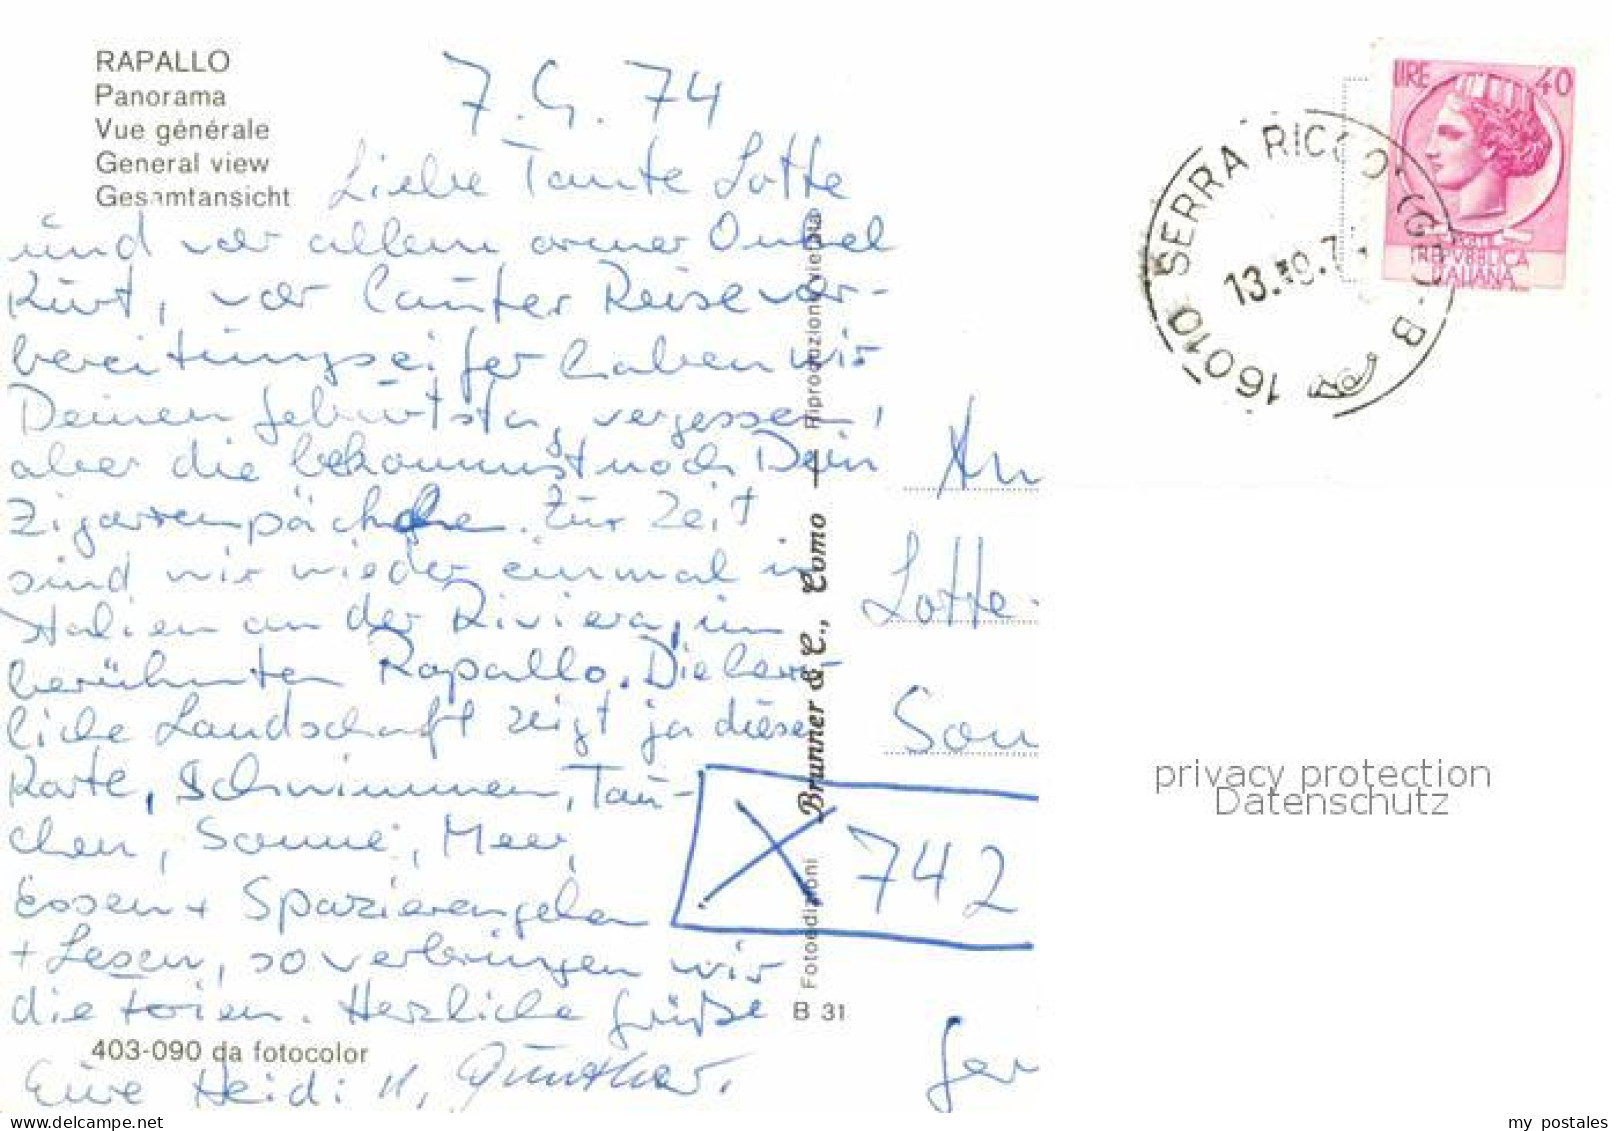 RAPALLO
Panorama
Vue générale
General view
Gesamtansicht
7.9.74
Liebe Tante Lotte
und vor allem armer Onkel
Kurt, vor lauter Reisevor-
bereitungseifer haben wir
Deinen Geburtstag vergessen,
aber die bekommst noch Dein
Zigarrenpäckchen. Zur Zeit
sind wir wieder einmal in
Italien an der Riviera, im
berühmten Rapallo. Die herr-
liche Landschaft zeigt ja diese
Karte, Schwimmen, Tau-
chen, Sonne, Meer,
Essen + Spazierengehen
+ Lesen, so verbringen wir
die Ferien. Herzliche Grüße
Eure Heidi u. Günther.
403-090 da fotocolor
Fotoedizioni Brunner & C., Como — Riproduzione vietata
B 31
LIRE 40
POSTE
REPVBBLICA
ITALIANA
16010 SERRA RICCO' (GE)
13.
An
Lotte
Son
742
Ger
privacy protection
Datenschutz
my postales